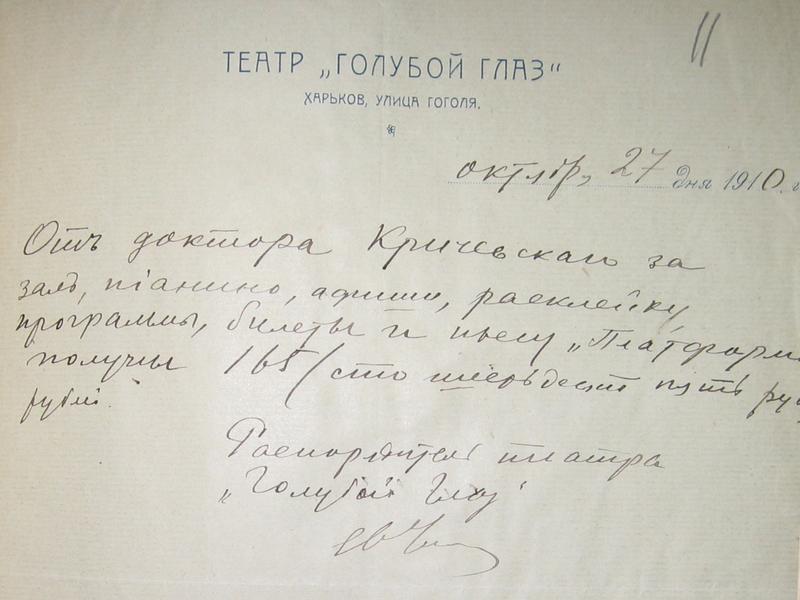 11
ТЕАТР „ГОЛУБОЙ ГЛАЗ“
ХАРЬКОВ, УЛИЦА ГОГОЛЯ.
октябр, 27 дня 1910. г
Отъ доктора Кричевскаго за
залъ, піанино, афиши, расклейку
программы, билеты и пьесу „Платформа
получилъ 165 (сто шестьдесят пять ру
рублей.
Распорядитель театра
„Голубой Глаз“